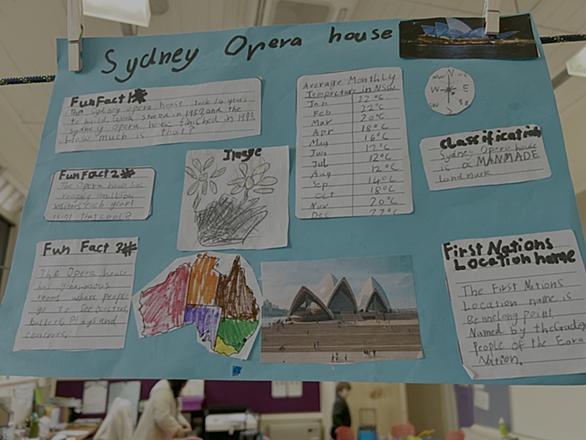 Sydney Opera house
Fun Fact 1#
The Sydney opera house took 14 years
to build. Work started in 1959 and the
Sydney opera was finished in 1973.
How much is that?
Fun Fact 2#
The Opera house has
roughly million
visitors each year!
isn't that cool?
Fun Fact 3#
The Opera house
has
rooms where people
go to see
ballets, plays and
concerts.
Image
Average Monthly
Temprature in NSW
Jan 22°C
Feb 22°C
Mar 20°C
Apr 18°C
May 16°C
Jun 12°C
Jul 12°C
Aug 12°C
Sep 14°C
Oct 18°C
Nov 20°C
Dec 22°C
N
W E
S
Classification
Sydney Opera house
is a MANMADE
landmark.
First Nations
Location name
The First Nations
Location name is
Bennelong point
Named by the Gadigal
people of the Eora
Nation.